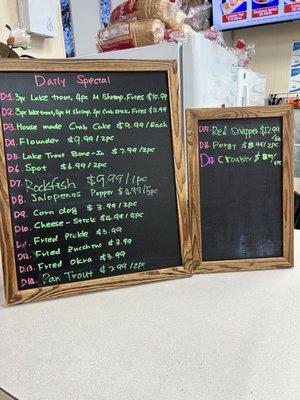 Daily Special
D1. 3pc Lake trout, 4pc M Shrimp. Fries $10.99
D2. 3pc Lake trout, 4pc M Shrimp, 2pc Crab stick. Fries $12.99
D3. House made Crab Cake $9.99/Each
D4. Flounder $9.99/2pc
D5. Lake Trout Bone-In $7.99/2pc
D6. Spot $6.99/2pc
D7. Rockfish $9.99/1pc
D8. Jalapenos Popper $4.99/5pc
D9. Corn dog $3.99/2pc
D10. Cheese-Stick $4.99/5pc
D11. Fried Pickle $3.99
D12. Fried Zucchini $3.99
D13. Fried Okra $3.99
D14. Pan Trout $7.99/2pc
Red Snapper $12.99
Porgy $8.99/2pc
Croaker